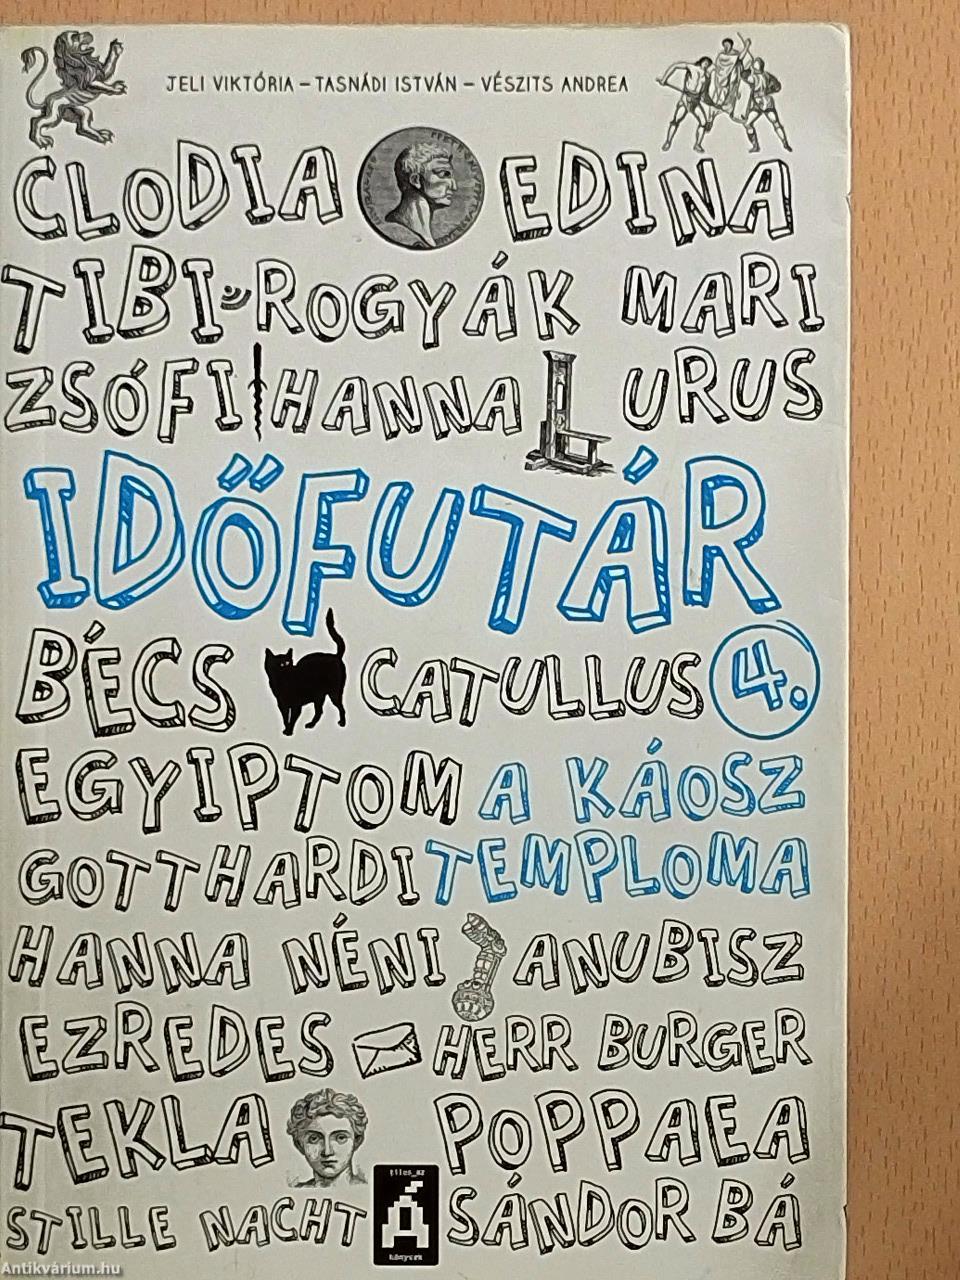 JELI VIKTÓRIA – TASNÁDI ISTVÁN – VÉSZITS ANDREA
CLODIA EDINA
TIBI ROGYÁK MARI
ZSÓFI HANNA URUS
IDŐFUTÁR
BÉCS CATULLUS 4.
EGYIPTOM A KÁOSZ
GOTTHARDI TEMPLOMA
HANNA NÉNI ANUBISZ
EZREDES HERR BURGER
TEKLA POPPAEA
tilos_az
Á
könyvek
STILLE NACHT SÁNDOR BÁ
Antikvárium.hu